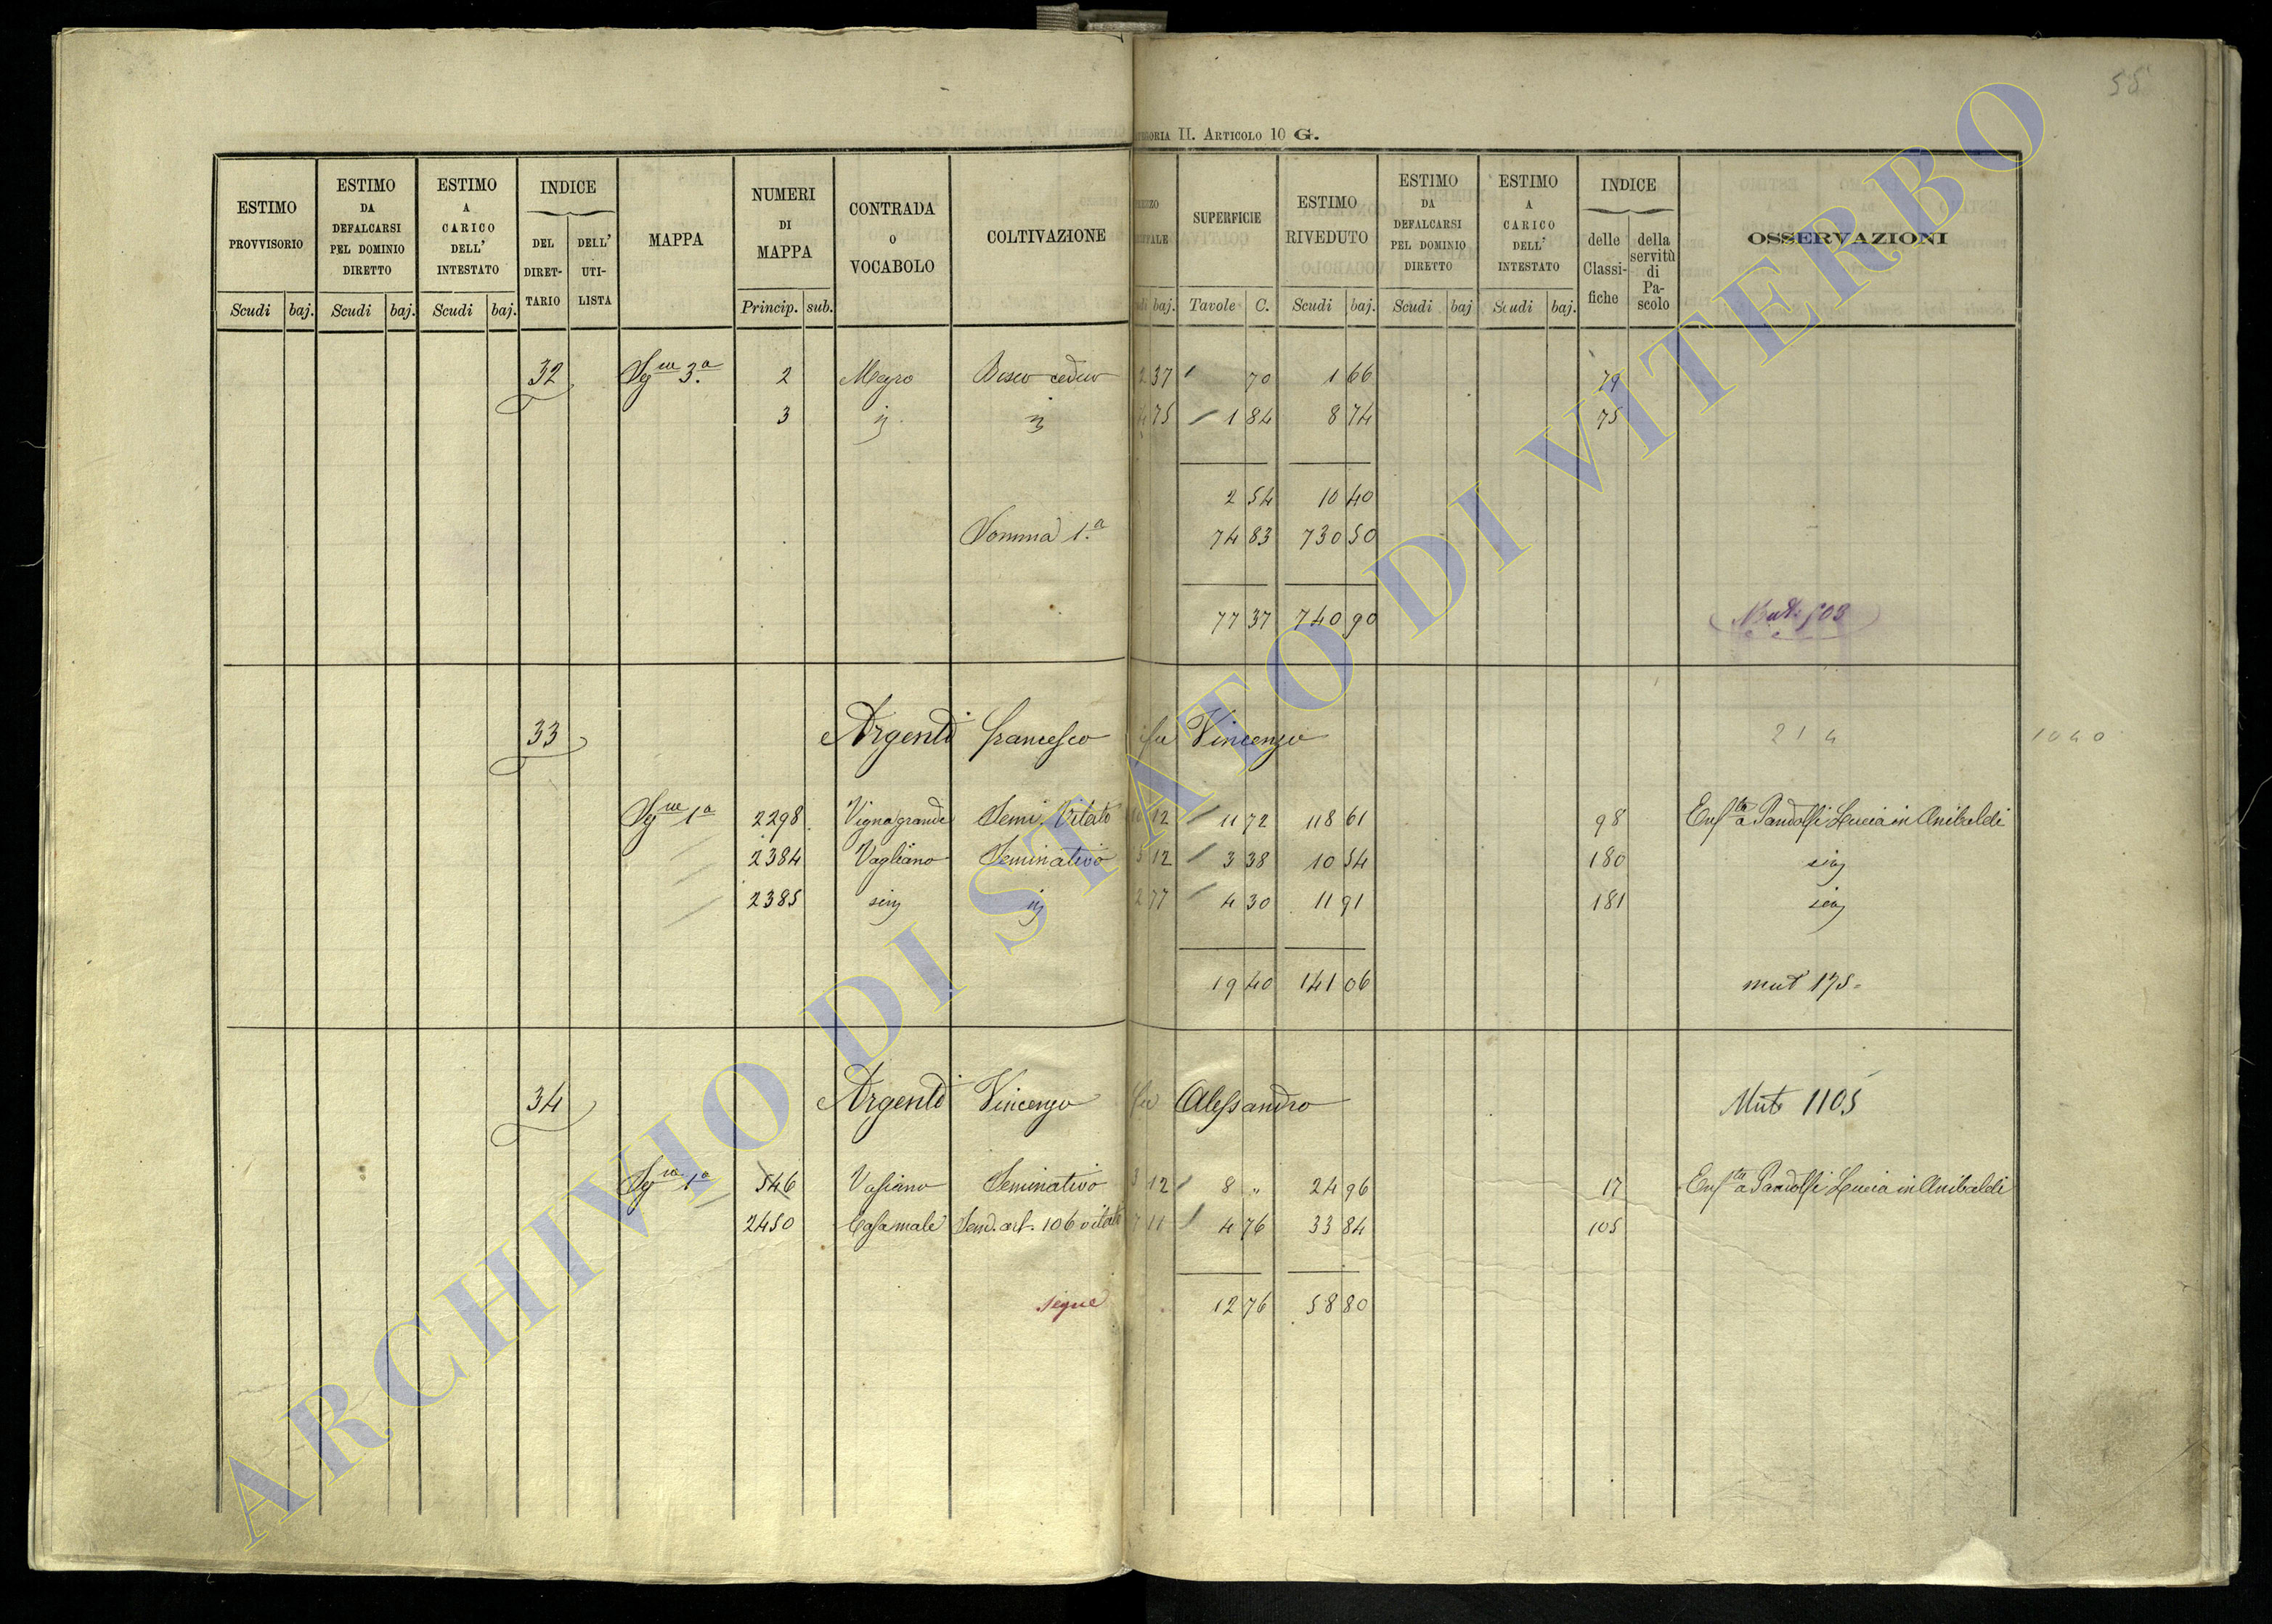 58
TEGORIA II. ARTICOLO 10 G.
ESTIMO PROVVISORIO Scudi baj.
ESTIMO DA DEFALCARSI PEL DOMINIO DIRETTO Scudi baj.
ESTIMO A CARICO DELL' INTESTATO Scudi baj.
INDICE DEL DIRET-TARIO DELL' UTI-LISTA
MAPPA
NUMERI DI MAPPA Princip. sub.
CONTRADA O VOCABOLO
COLTIVAZIONE
baj.
SUPERFICIE Tavole C.
ESTIMO RIVEDUTO Scudi baj.
ESTIMO DA DEFALCARSI PEL DOMINIO DIRETTO Scudi baj
ESTIMO A CARICO DELL' INTESTATO Scudi baj.
INDICE delle Classi-fiche della servitù di Pa-scolo
OSSERVAZIONI
32 Sg.ne 3.a 2 Bosco ceduo 2 37 70 1 66 79
3 75 1 84 8 74 75
2 54 10 40
Somma 1.a 74 83 730 50
77 37 740 90
33 Argenti Francesco fu Vincenzo 214 1040
Sg.ne 1a 2298 Vigna grande Semi. Vitato 12 11 72 118 61 98 Enf.ta a Pandolfi Lucia in Anibaldi
2384 Vagliano Seminativo 12 3 38 10 54 180
2385 2 77 4 30 11 91 181
19 40 141 06 mut 175
34 Argenti Vincenzo fu Alessandro Mut. 1105
Sg.ne 1a 546 Vasiano Seminativo 3 12 8 " 24 96 17 Enf.ta a Pandolfi Lucia in Anibaldi
2450 Casamale 7 11 4 76 33 84 105
segue 12 76 58 80
ARCHIVIO DI STATO DI VITERBO